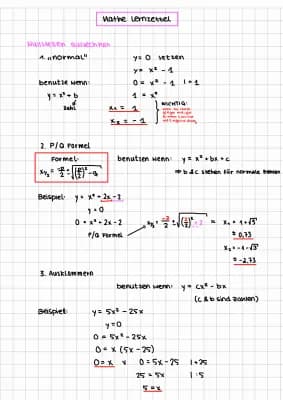 Mathe Lernzettel
Nullstellen ausrechnen
1. "normal"
y = 0 setzen
y = x² - 1
benutze wenn:
0 = x² - 1 | + 1
y = x² + b
1 = x²
Zahl
x₁ = 1
WICHTIG:
x₂ = -1
2. P/Q Formel
Formel:
x₁/₂ = -p/2 ± √((p/2)² - q)
benutzen wenn: y = x² + bx + c
⇒ b & c stehen für normale Zahlen
Beispiel: y = x² + 2x - 2
y = 0
0 = x² + 2x - 2
P/Q Formel
x₁/₂ = -2/2 ± √((2/2)² + 2)
= x₁ = -1 + √3
= 0,73
x₂ = -1 - √3
= -2,73
3. Ausklammern
benutzen wenn: y = cx² - bx
(c & b sind Zahlen)
Beispiel: y = 5x² - 25x
y = 0
0 = 5x² - 25x
0 = x (5x - 25)
0 = x v 0 = 5x - 25 | + 25
25 = 5x | : 5
5 = x